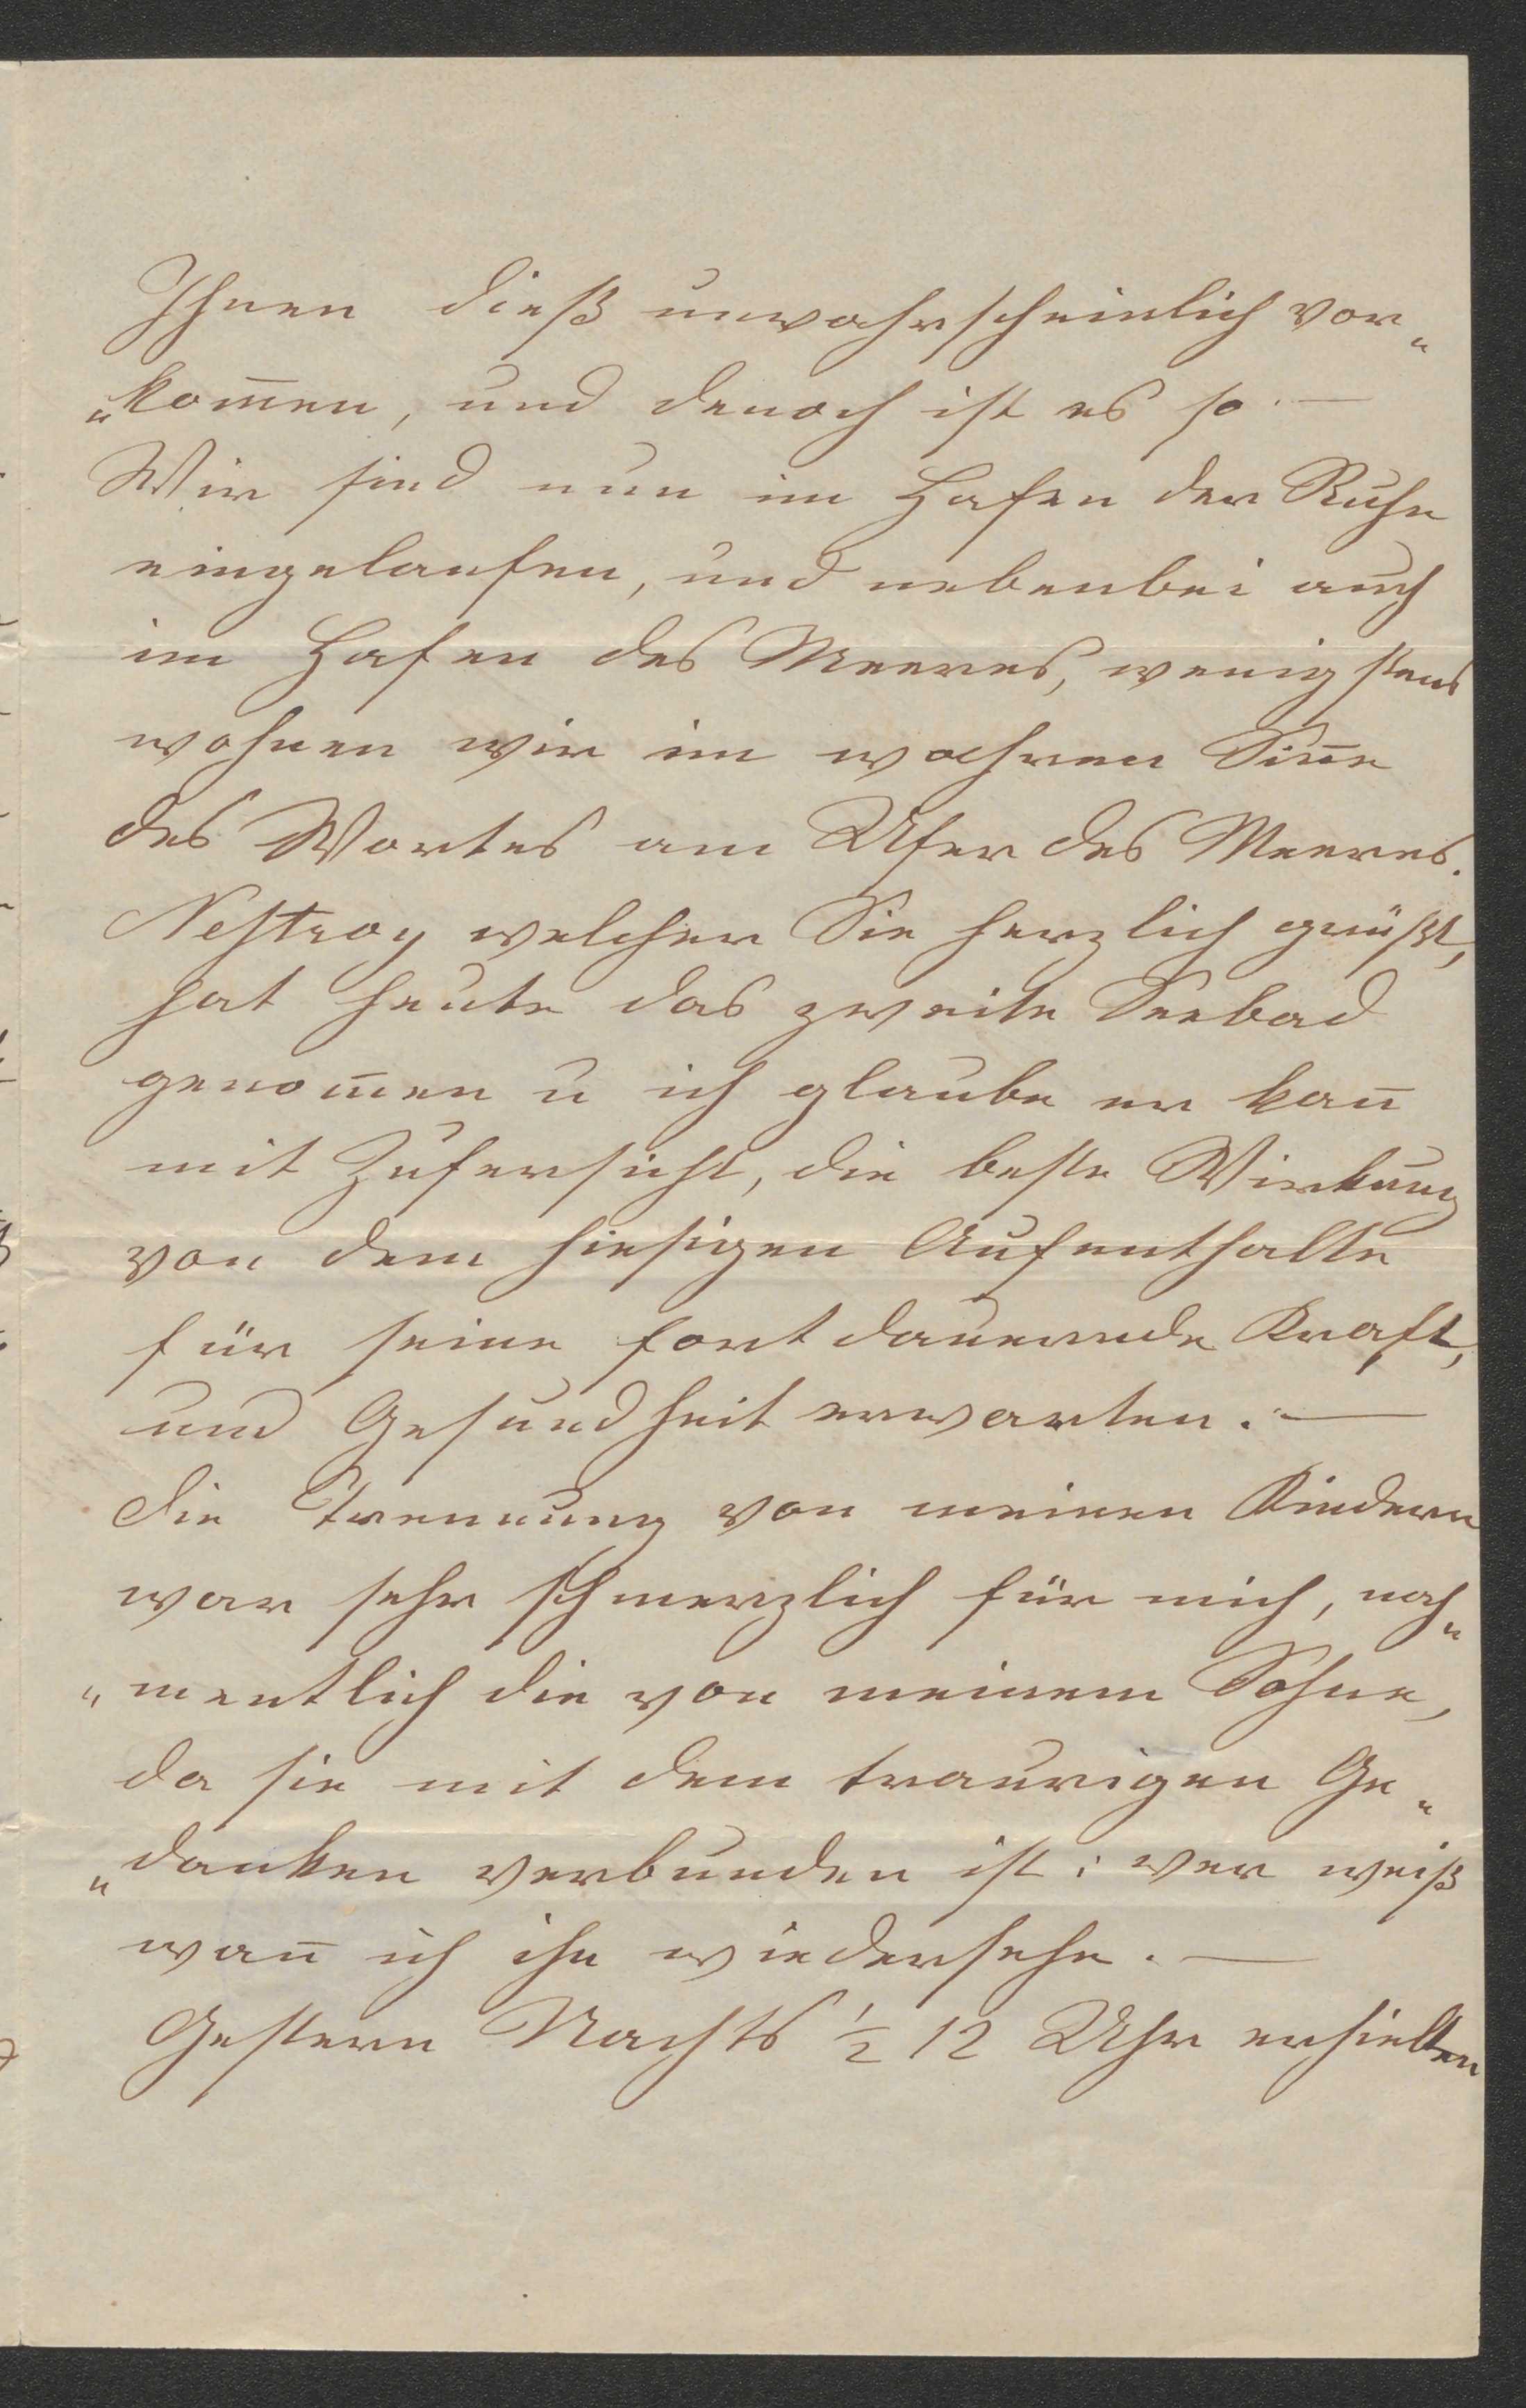 Ihnen dieß unwahrscheinlich vor„
„kom̄en, und denoch ist es so. —
Wir sind nun im Hafen der Ruhe
eingelaufen, und nebenbei auch
im Hafen des Meeres, wenigstens
wohnen wir im wahren Sin̄e
des Wortes am Ufer des Meeres.
Nestroy welcher Sie herzlich grüßt,
hat heute das zweite Seebad
genom̄en u ich glaube er kan̄
mit Zufersicht, die beste Wirkung
von dem hiesigen Aufenthalte
für seine fortdauernde Kraft,
und Gesundheit erwarten. —
Die Trennung von meinen Kindern
war sehr schmerzlich für mich, nah„
„mentlich die von meinem Sohne,
da sie mit dem traurigen Ge„
„danken verbunden ist: wer weiß
wan̄ ich ihn wiedersehe. —
Gestern Nachts ½ 12 Uhr erhielten